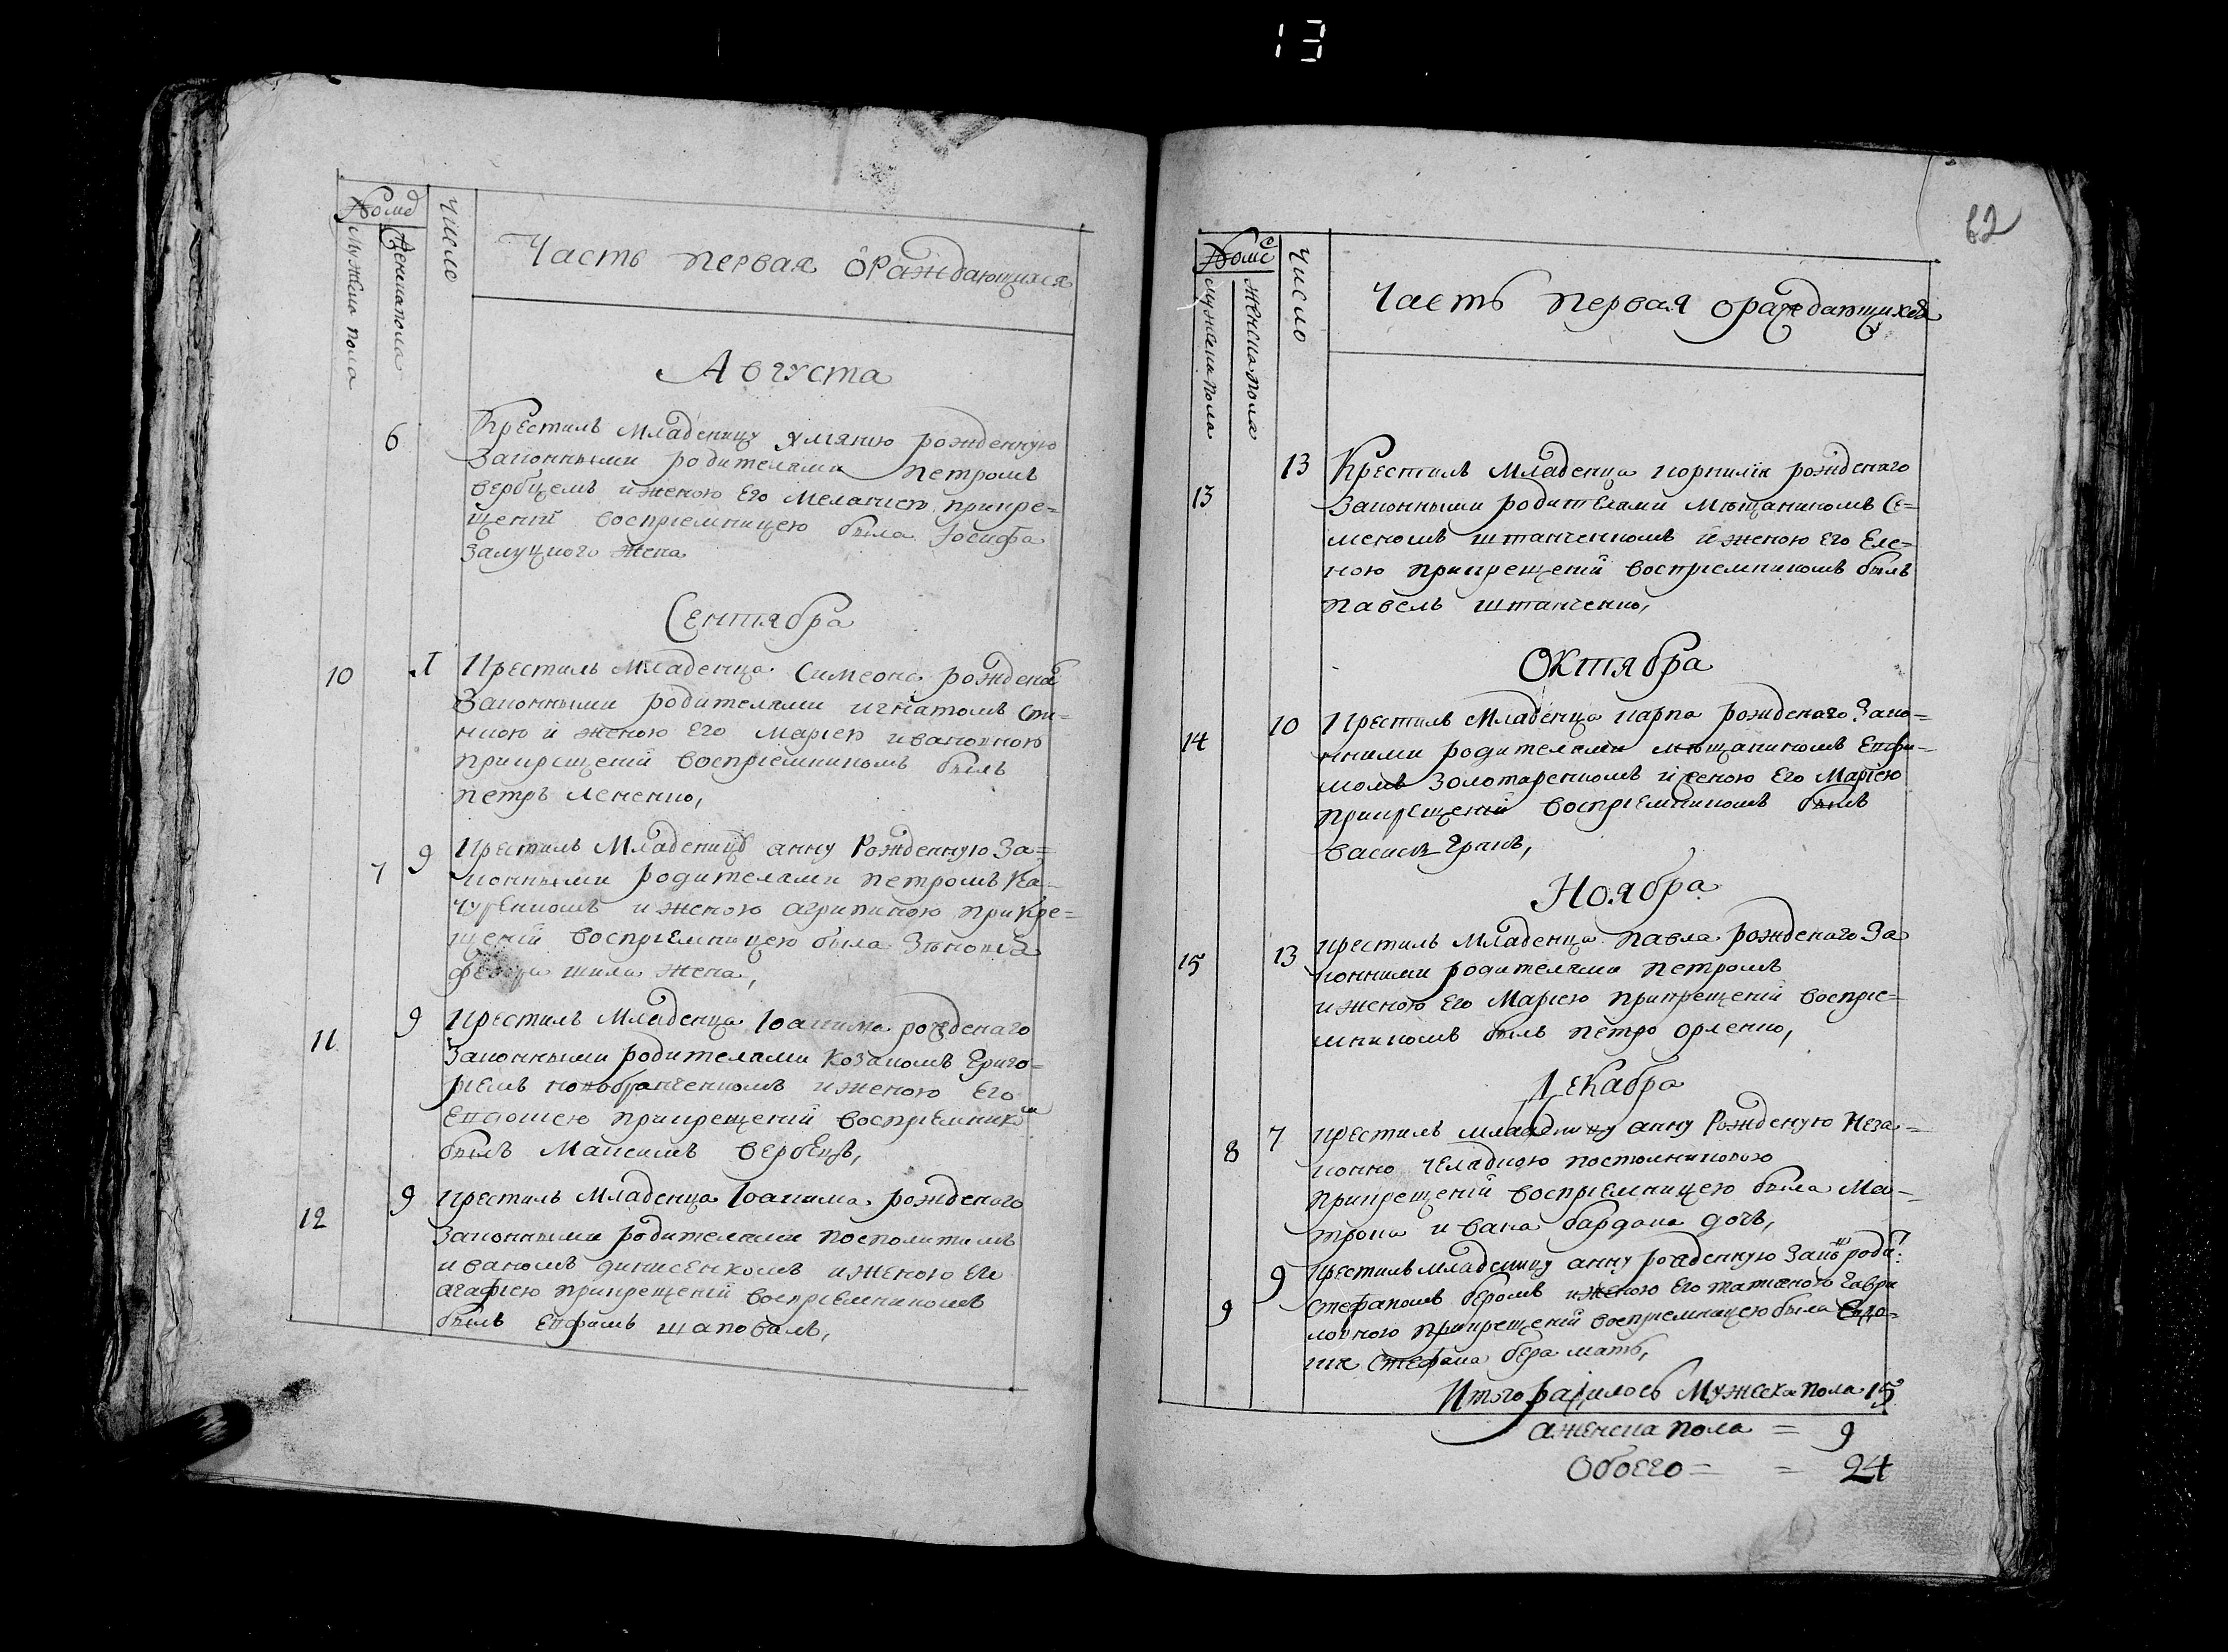 13
Номе
Мужеска пола
Женска пола
Число
Часть первая О Раждающихся
Августа
6 Крестилъ Младеницу улянию рожденную
Законными родителями Петромъ
вербцемъ и женою Его Меланиею прикре=
щеніи воспріемницею была Іосифа
Залуцкого жена
Сентября
10 1 Крестилъ Младенца Симеона рожденаго
Законными родителями игнатомъ
и женою Его Маріею ивановною
прикрещеніи воспріемникомъ былъ
петръ
7 9 Крестилъ Младеницу анну Рожденную За=
конными родителями петромъ Ка=
чуренкомъ и женою агрипиною прикре=
щеніи воспріемницею была Зѣновія
шила жена,
11 9 Крестилъ Младенца Іоакима рожденаго
Законными родителями Козакомъ Григо=
ріемъ и женою Его
прикрещеніи воспріемникомъ
былъ Максимъ вербецъ,
12 9 Крестилъ Младенца Іоакима рожденого
Законными родителями посполитимъ
иваномъ динисенкомъ и женою Его
агафіею прикрещеніи воспріемникомъ
былъ Ефимъ шаповалъ,
62
Номе
мужеска пола
женска пола
Число
Часть первая ораждающихся
13 13 Крестилъ Младенца корнилія рожденаго
Законными родителями Мѣщаникомъ Се=
меномъ штанченкомъ и женою Его Еле=
ною прикрещеніи воспріемникомъ былъ
павелъ штанченко,
Октября
14 10 Крестилъ Младенца карпа рожденаго Зако=
нними родителями мѣщаникомъ Евфи=
момъ Золотаренкомъ и женою Его Маріею
прикрещеніи воспріемникомъ былъ
василь Грекъ,
Ноября
15 13 крестилъ Младенца павла рожденаго За
конними родителями петромъ
и женою Его Маріею прикрещеніи воспріе=
мникомъ былъ петро орленко,
Декабра
8 7 крестилъ младеницу анну Рожденую Неза=
конно челадкою
прикрещеніи воспріемницею была Ма=
трона ивана бардака дочъ,
9 9 крестилъ младеницу анну рожденную Закѡн: роди:
стефаномъ беромъ и женою Его татяною Гаври
ловною прикрещеніи воспріемницею была Евдо=
кія стефана бера мать,
Итого родилось Мужеска пола 15
а женска пола = 9
Обоего = = 24